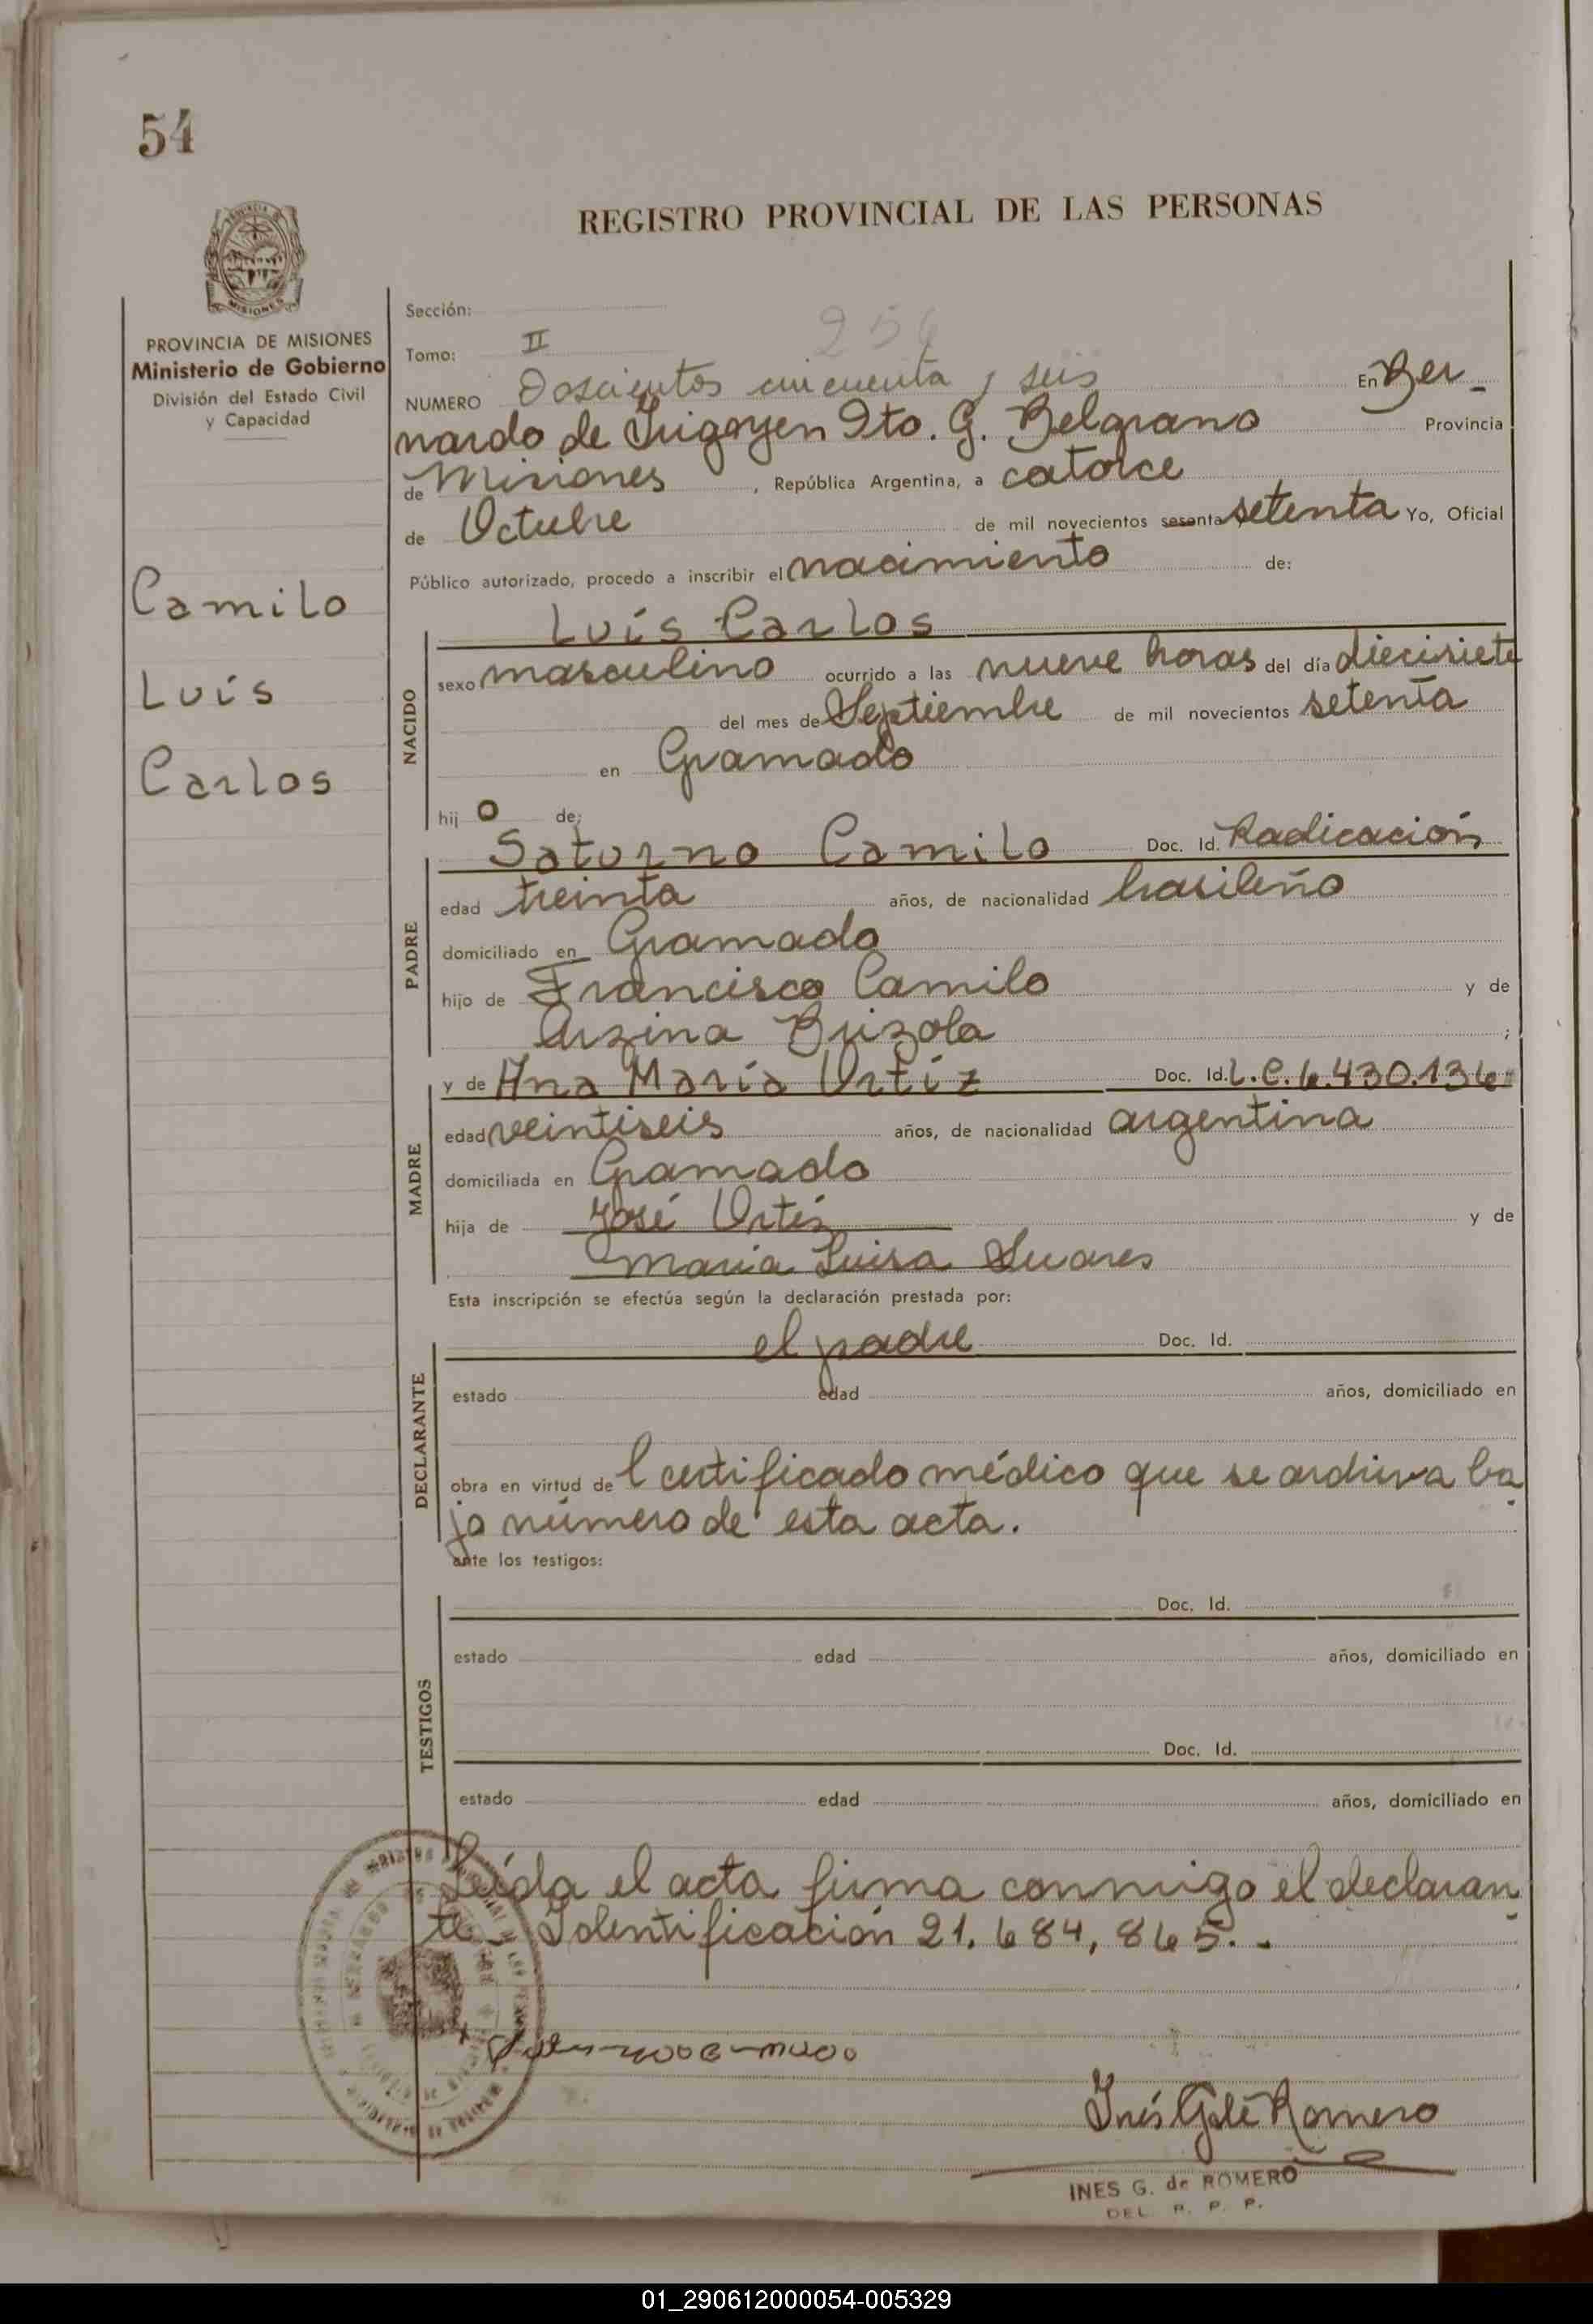 54
REGISTRO PROVINCIAL DE LAS PERSONAS
MISIONES
PROVINCIA DE MISIONES
Ministerio de Gobierno
División del Estado Civil
y Capacidad
Camilo
Luis
Carlos
Sección:
Tomo: II
256
NUMERO Doscientos cincuenta y seis En Ber-
nardo de Irigoyen Dto. G. Belgrano Provincia
de Misiones, República Argentina, a catorce
de Octubre de mil novecientos sesenta setenta Yo, Oficial
Público autorizado, procedo a inscribir el nacimiento de:
Luis Carlos
NACIDO
sexo masculino ocurrido a las nueve horas del día diecisiete
del mes de Septiembre de mil novecientos setenta
en Gramado
hijo de;
Saturno Camilo Doc. Id. Radicación
PADRE
edad treinta años, de nacionalidad brasileño
domiciliado en Gramado
hijo de Francisco Camilo y de
Arzina Brizola ;
y de Ana María Ortiz Doc. Id. L.C. 6.430.136
MADRE
edad veintiseis años, de nacionalidad argentina
domiciliada en Gramado
hija de José Ortiz y de
Maria Luisa Suares
Esta inscripción se efectúa según la declaración prestada por:
el padre Doc. Id.
DECLARANTE
estado edad años, domiciliado en
obra en virtud del certificado médico que se archiva ba
jo número de esta acta.
ante los testigos:
TESTIGOS
Doc. Id.
estado edad años, domiciliado en
Doc. Id.
estado edad años, domiciliado en
Leída el acta firma conmigo el declaran
te - Identificación 21.684,865. -
Inés G. de Romero
INES G. de ROMERO
DEL R. P. P.
01_290612000054-005329